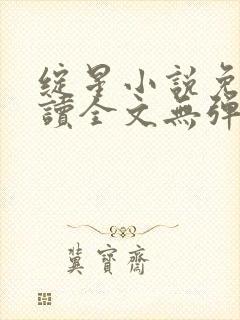 綻星小說免
讀全文無彈
冀寶齋